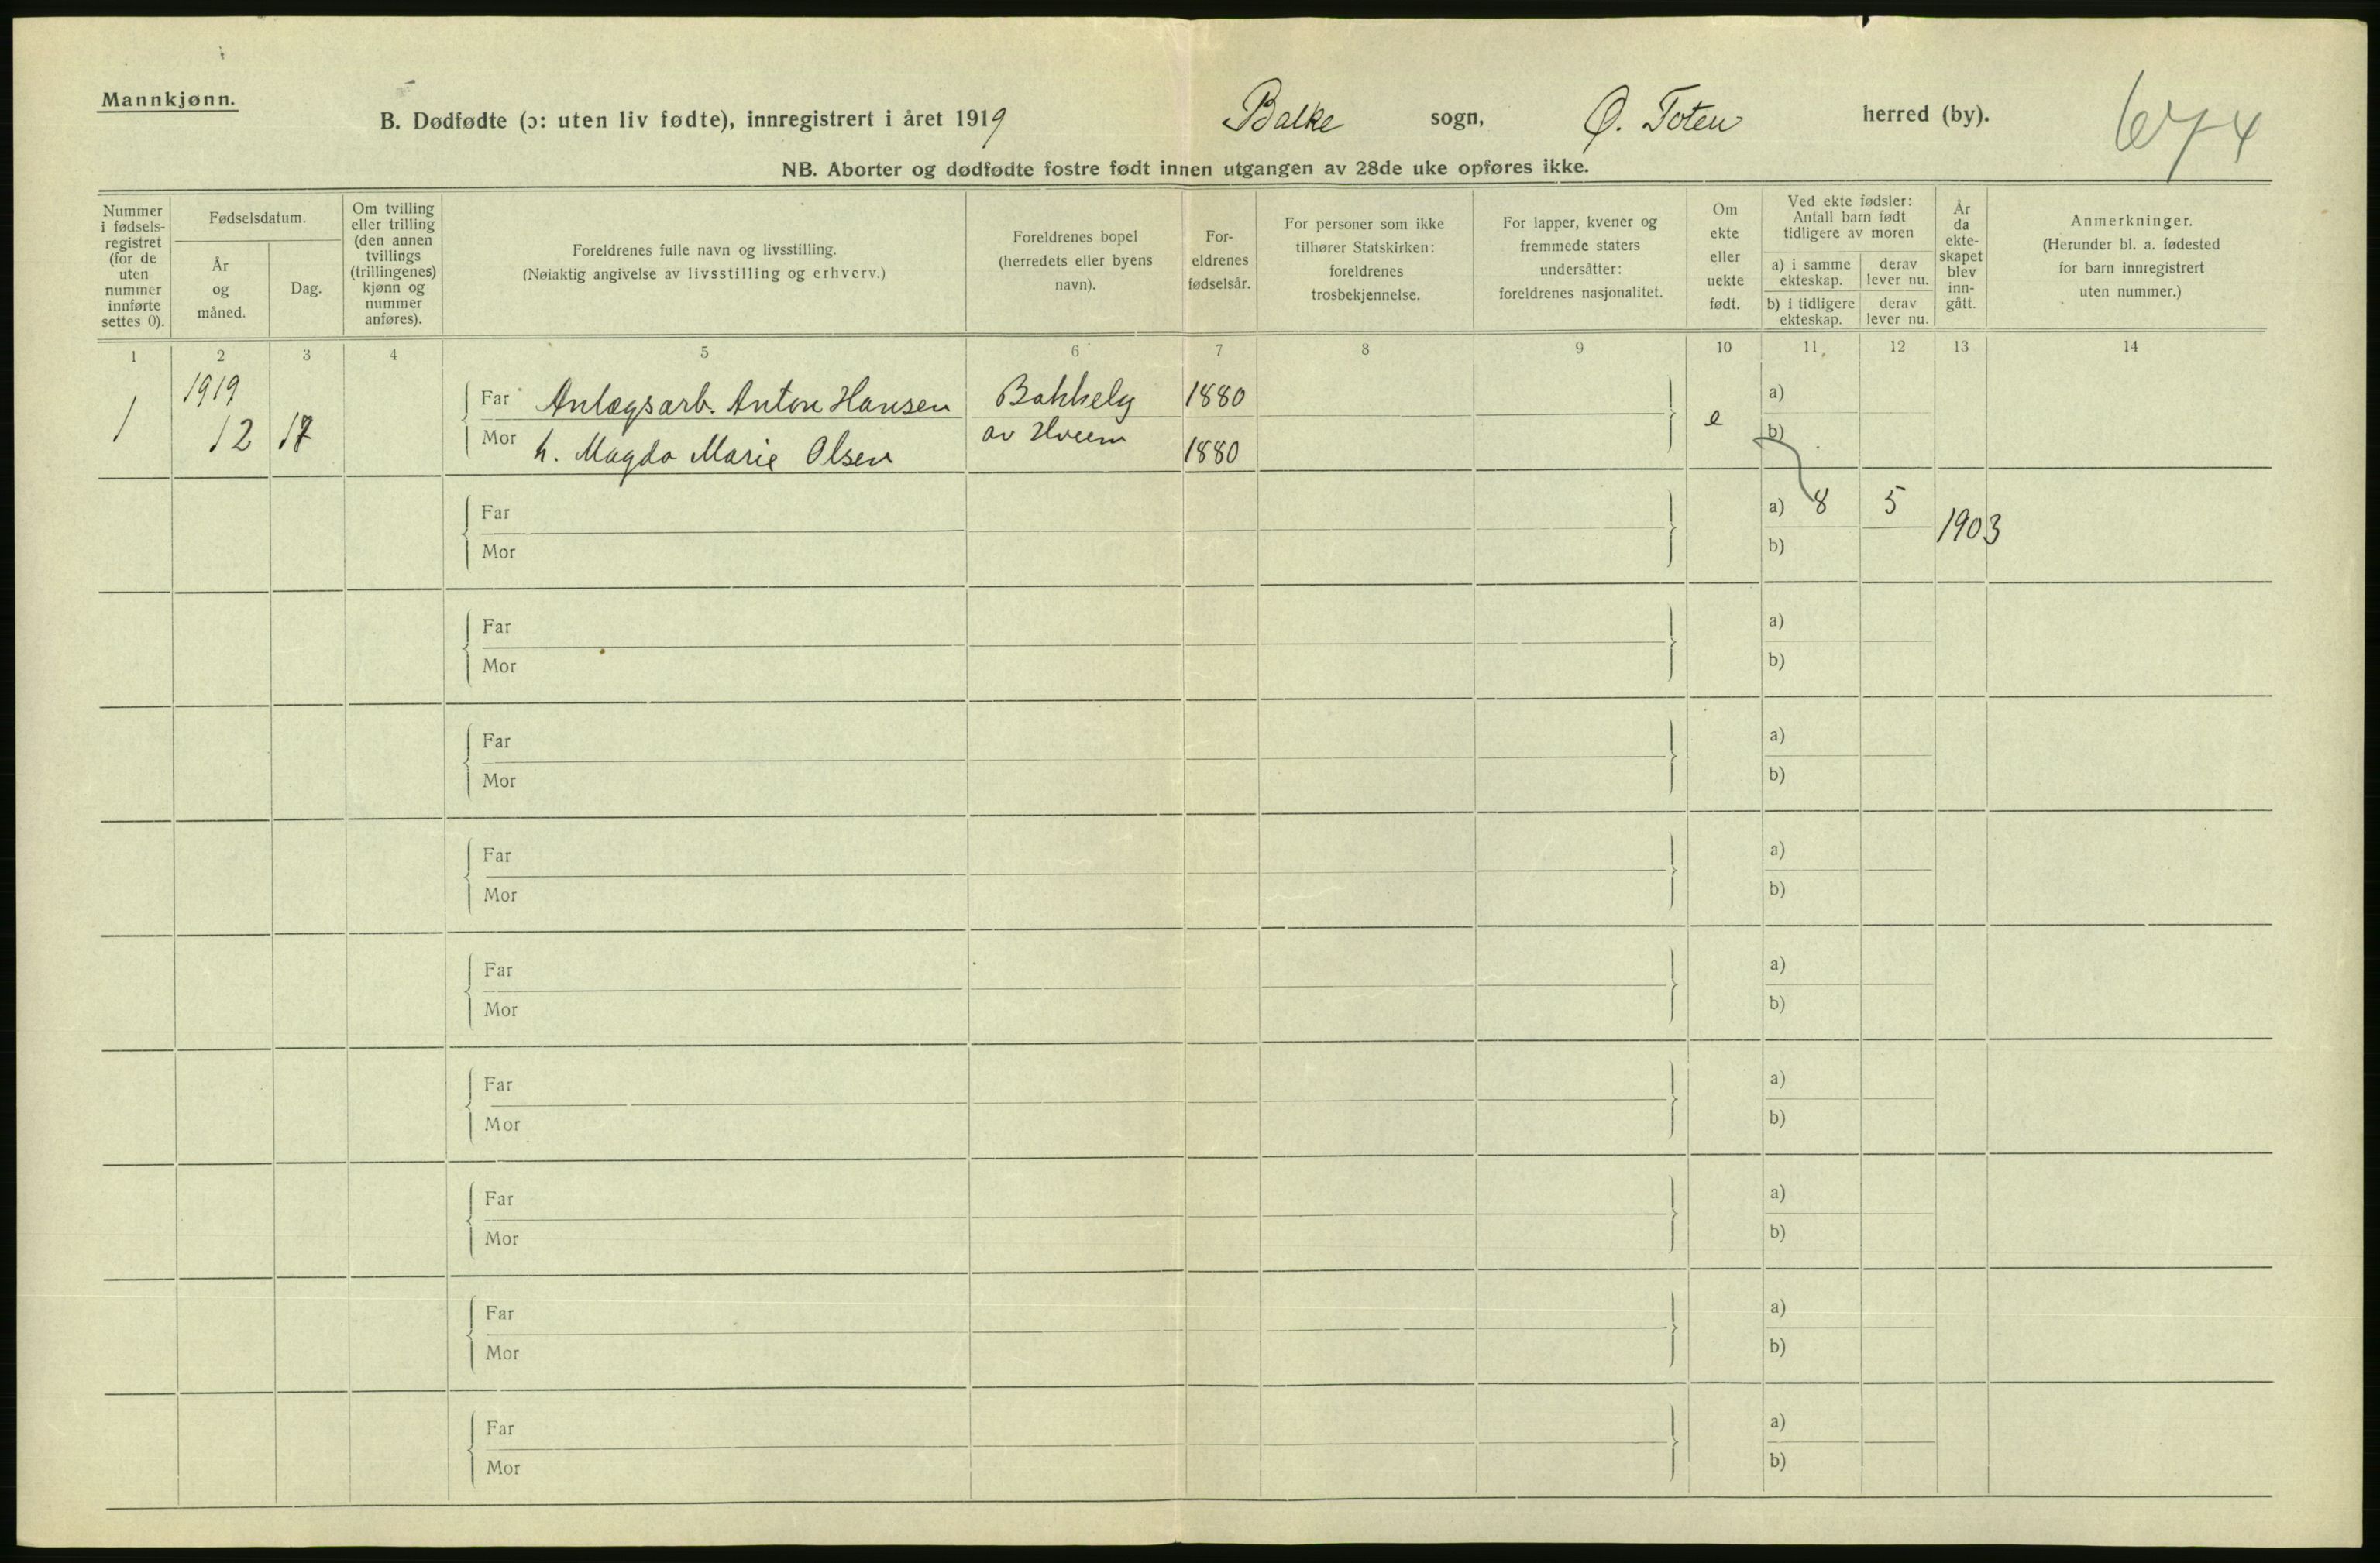 Mannkjønn.
B. Dødfødte (ɔ: uten liv fødte), innregistrert i året 1919 Balke sogn, Ø. Toten herred (by).
674
NB. Aborter og dødfødte fostre født innen utgangen av 28de uke opføres ikke.
Nummer i fødsels-registret (for de uten nummer innførte settes 0).
Fødselsdatum.
År og måned.
Dag.
Om tvilling eller trilling (den annen tvillings (trillingenes) kjønn og nummer anføres).
Foreldrenes fulle navn og livsstilling.
(Nøiaktig angivelse av livsstilling og erhverv.)
Foreldrenes bopel (herredets eller byens navn).
For-eldrenes fødselsår.
For personer som ikke tilhører Statskirken: foreldrenes trosbekjennelse.
For lapper, kvener og fremmede staters undersåtter: foreldrenes nasjonalitet.
Om ekte eller uekte født.
Ved ekte fødsler: Antall barn født tidligere av moren
a) i samme ekteskap.
derav lever nu.
b) i tidligere ekteskap.
derav lever nu.
År da ekte-skapet blev inn-gått.
Anmerkninger.
(Herunder bl. a. fødested for barn innregistrert uten nummer.)
1 2 3 4 5 6 7 8 9 10 11 12 13 14
1919
1 12 17
Far Anlægsarb. Anton Hansen Bakkely 1880 e a)
Mor h. Magda Marie Olsen av Hveem 1880 b)
Far a) 8 5 1903
Mor b)
Far a)
Mor b)
Far a)
Mor b)
Far a)
Mor b)
Far a)
Mor b)
Far a)
Mor b)
Far a)
Mor b)
Far a)
Mor b)
Far a)
Mor b)